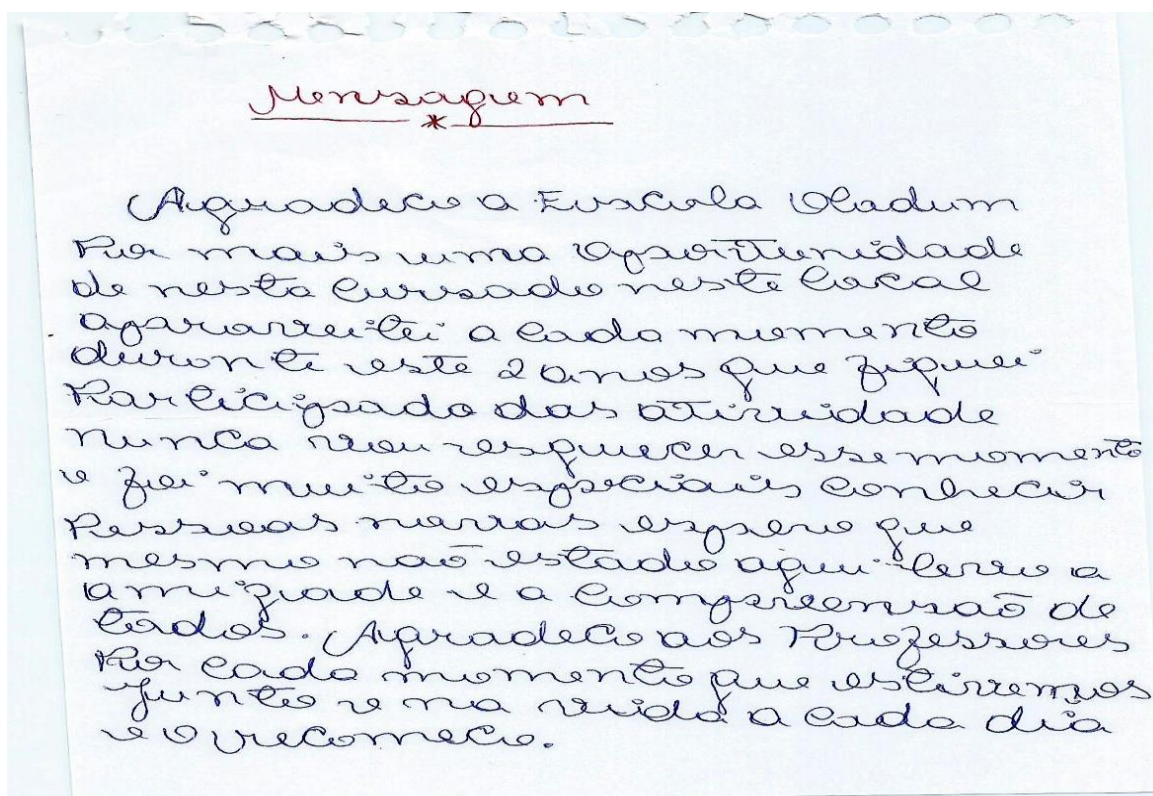 Mensagem
Agradeco a Escola Oladum
Por mais uma oportunidade
de nesta cursado neste local
aproveitei a cada momento
durante este 2 anos que fiquei
Participado das atividade
nunca vou esquecer esse momento
e foi muito especiais conhecer
Pessoas novas espero que
mesmo não estado aqui levo a
amizade e a compreensão de
todos. Agradeco aos Professores
Por cada momento que estivemos
junto e na vida a cada dia
e o recomeco.